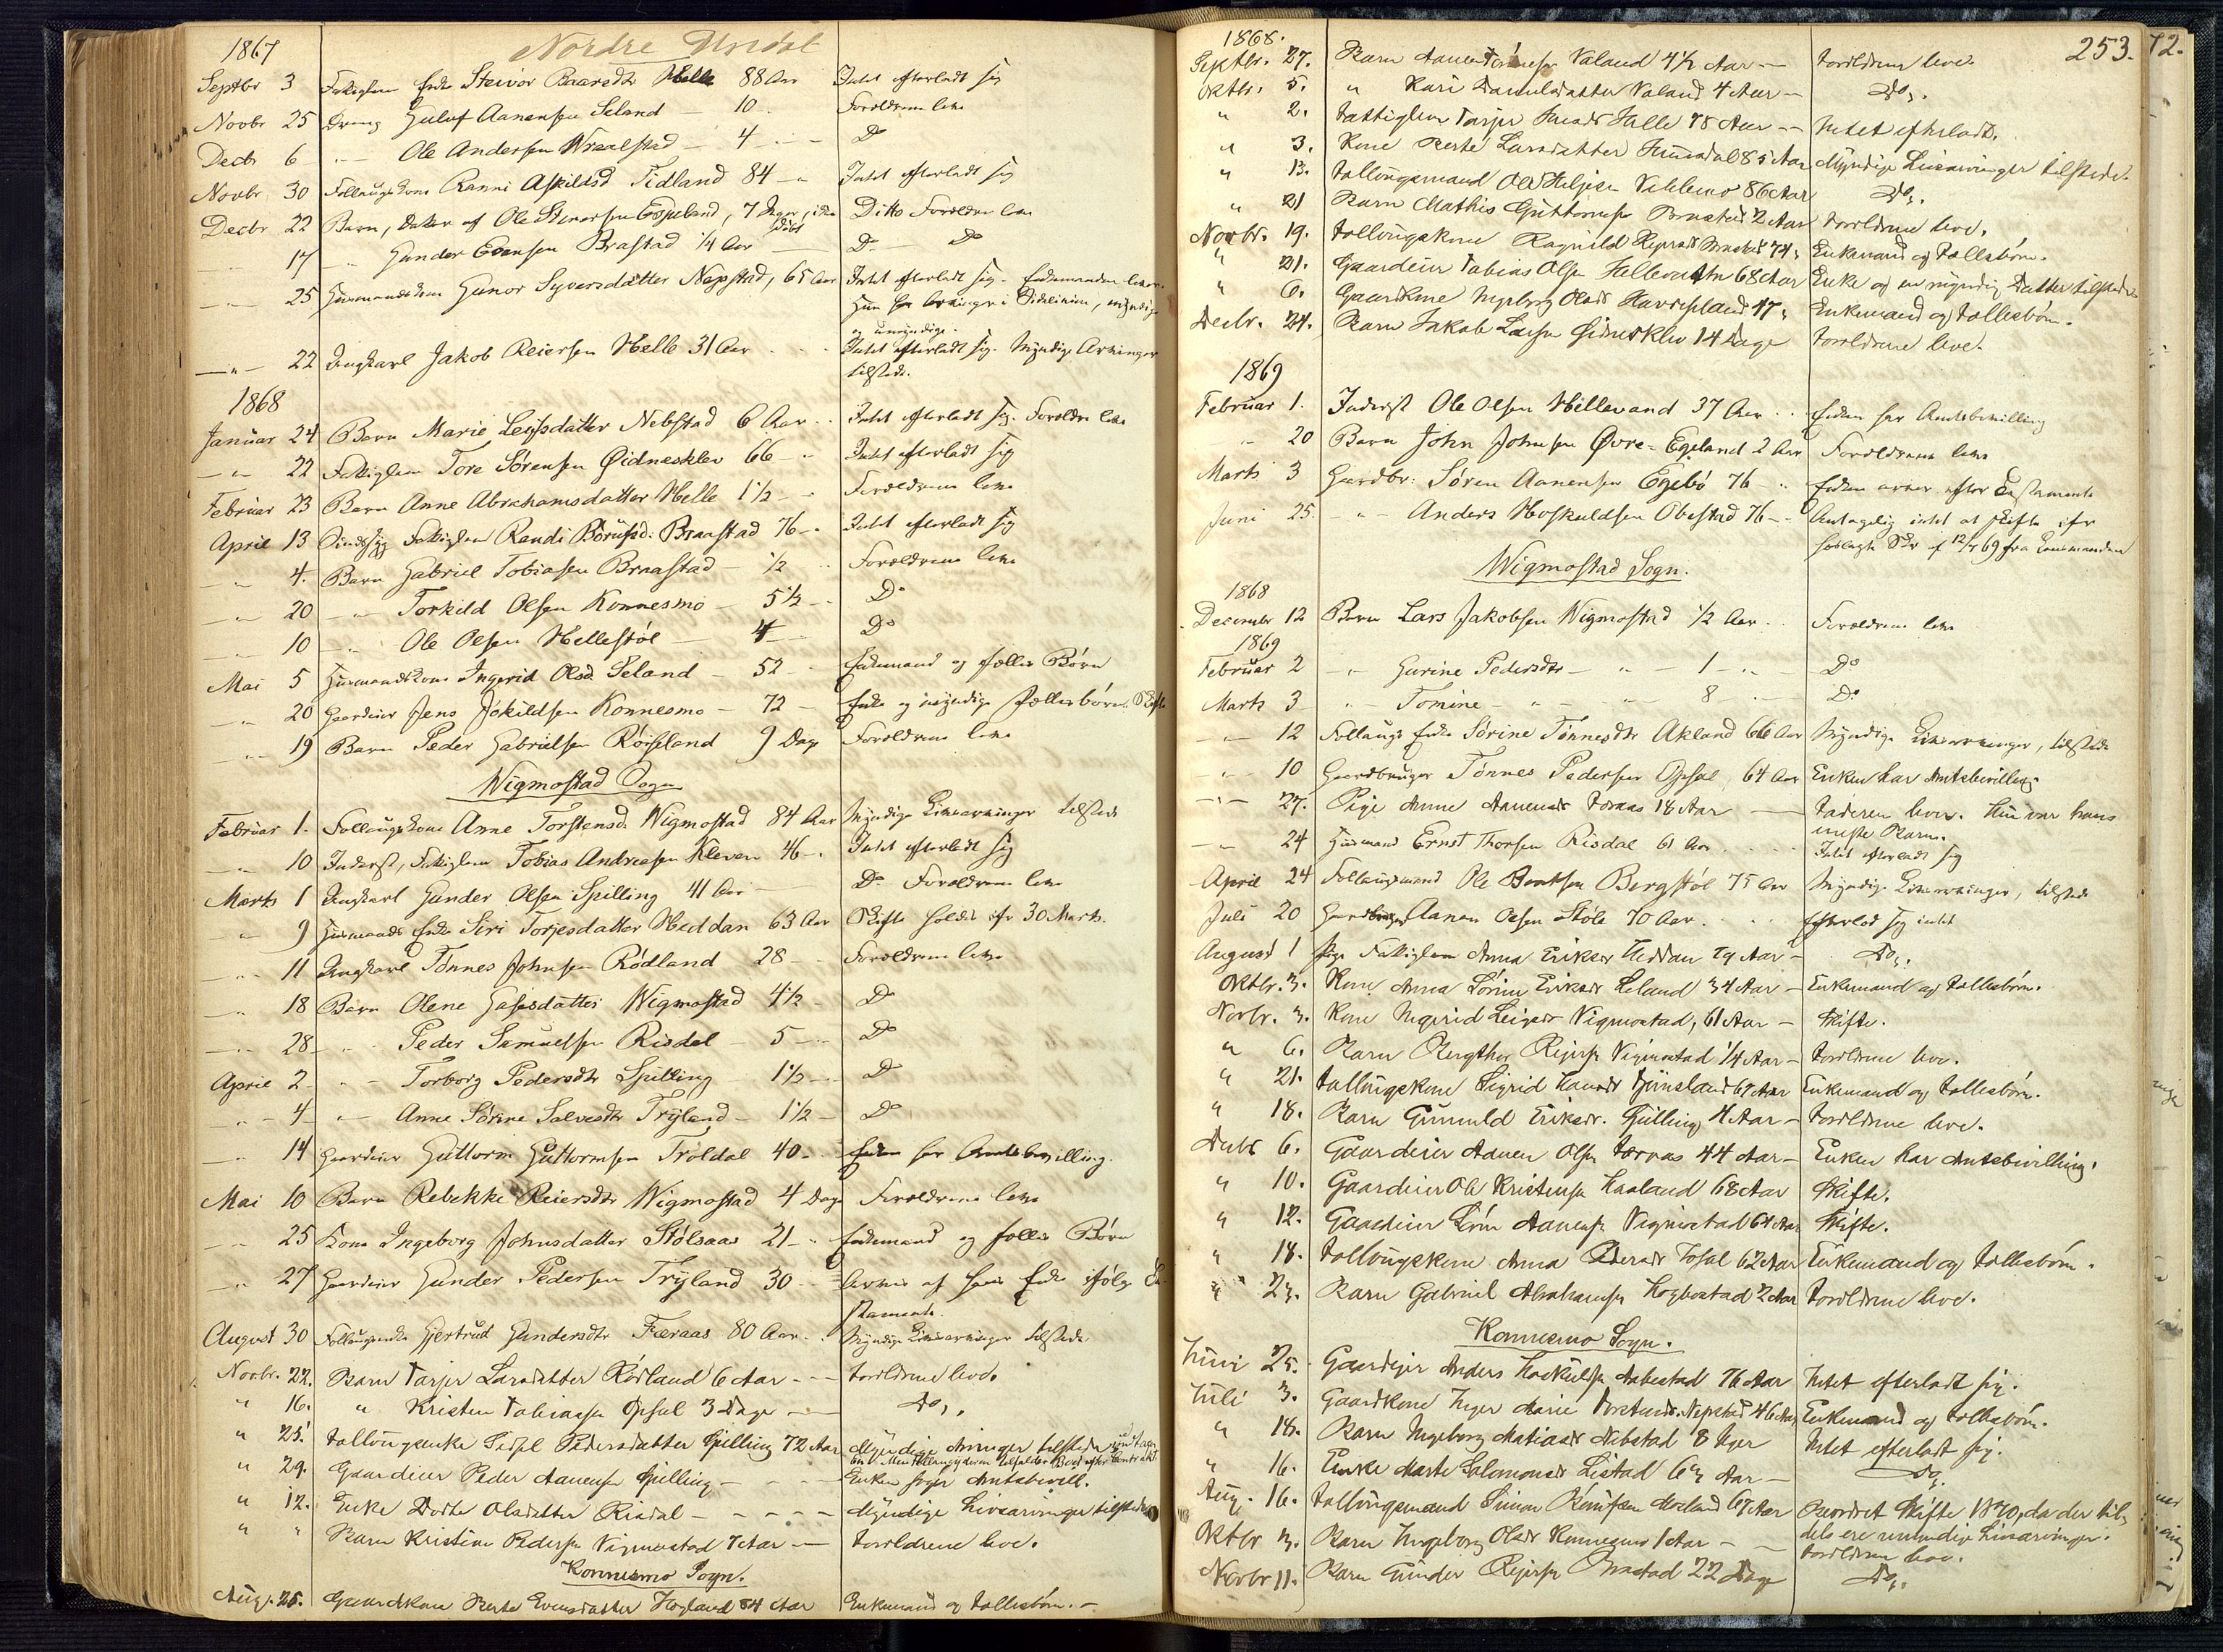 1867 Nordre Undal
Septbr 3 Enke Steivor Baarsdtr Helle 88 Aar Intet efterladt sig
Novbr 25 Dreng Guluf Aanensen Seland - 10 - Forældrene leve
Decbr 6 - " - Ole Andersen Wraalstad - 4 - - Do
Novbr 30 Follaugskone Ranni Askildsd Tidland 84 - " Intet efterladt sig
Decbr 22 Barn, Datter af Ole Espeland, 7 Dage, ikke døbt Ditto Forældre leve
- " - 17 - " Gunder Evensen Brastad 1/4 Aar - Do - Do
- " - 25 Huusmandskone Gunor Syversdatter Nepstad, 65 Aar Intet efterladt sig. Enkemanden lever.
Hun har Arvinger i Sidelinien, myndige
og umyndige.
- " - 22 Ungkarl Jakob Reiersen Helle 31 Aar . . . Intet efterladt sig. Myndige Arvinger
tilstede.
1868
Januar 24 Barn Marie Leifsdatter Nebstad 6 Aar . . Intet efterladt sig. Forældre leve
- " - 22 Fattiglem Tore Sørensen Øidnesklev 66 - " Intet efterladt sig
Februar 23 Barn Anne Abrahamsdatter Helle 1 1/2 - " Forældrene leve
April 13 Fattiglem Randi Braastad 76 - " Intet efterladt sig
- " 4. Barn Gabriel Tobiasen Braastad 1/2 " Forældrene leve
- " 20 - " - Torkild Olsen Konnesmo - 5 1/2 - " Do
- " 10 - " Ole Olsen Hellestøl - 4 - Do
Mai 5 Huusmandskone Ingerid Olsd. Seland - 52 - Enkemand og fælles Børn
- " 20 Gaardeier Jens Jokildsen Konnesmo - 72 - Enke og myndige Fællesbørn. Skifte
- " 19 Barn Peder Gabrielsen Røiseland 9 Dage Forældrene leve
Wigmostad Sogn
Februar 1. Follaugskone Anne Torstensd. Wigmostad 84 Aar Myndige Livsarvinger tilstede
- " 10 Inderst, Fattiglem Tobias Andreasen Kleven 46 - " Intet efterladt sig
Marts 1 Ungkarl Gunder Olsen Spilling 41 Aar - Do Forældrene leve
- " 9 Huusmands Enke Siri Torjesdatter Heddan 63 Aar Skifte holdes 30 Marts
- " 11 Ungkarl Tønnes Johnsen Rødland 28 - - Forældrene leve
- " 18 Barn Olene Wigmostad 4 1/2 - Do
- " 28 - " - Peder Samuelsen Risdal - 5 - " Do
April 2 - " - Torborg Pedersdtr Spilling 1 1/2 - - Do
- " - 4 - " - Anne Sørine Salvesdtr Trÿland - 1 1/2 - Do
- " 14 Gaardeier Guttorm Guttormsen Troldal 40 - . Enken har Amtsbevilling.
Mai 10 Barn Rebekke Reiersdtr Wigmostad 4 Dage Forældrene leve
- " 25 Kone Ingeborg Johnsdatter Stølsaas 21 - " Enkemand og fælles Børn
- " 27 Gaardeier Gunder Pedersen Trÿland 30 - - Arves af hans Enke ifølge Te-
stamente.
August 30 Follaugsenke Gjertrud Gundersdtr Færaas 80 Aar . . Myndige Livsarvinger tilstede
Novbr. 22. Barn Tarjer Larsdatter Rødland 6 Aar - - - Forældrene leve.
" 16. " Kristen Tobiassen Opsal 3 Dage - - Do,.
" 25. Follougsenke Sidsel Pedersdatter Spilling 72 Aar Myndige Arvinger tilstede
" 29. Gaardeier Peder Aanensen Spilling - - - - Enken søger Amtsbevill.
" 12. Enke Dorte Olsdatter Risdal - - - - - Myndige Livsarvinger tilstede
" " Barn Kristine Pedersen Vigmostad 7 Aar - - Forældrene leve.
Konnesmo Sogn.
Aug. 25. Gaardkone Berte Evensdatter Høgland 54 Aar Enkemand og Fællesbørn. -
1868. 253. 72.
Septbr. 27. Barn Valand 4 1/2 Aar - - Forældrene leve.
Oktbr. 5. " Kari Valand 4 Aar - Do,.
" 2. Fattiglem Tarjer Helle 78 Aar - - Intet efterladt.
" 3. Kone Berte Larsdatter 85 Aar Myndige Livsarvinger tilstede.
" 13. Follougsmand Ole 86 Aar Do,.
" 21 Barn Mathis Guttormsen Brastad 2 Aar Forældrene leve.
Novbr. 19. Follougskone Ragnild Brastad 74, Enkemand og Fællesbørn.
" 21. Gaardeier Tobias Olsen 68 Aar Enke og en myndig Datter tilstede
" 6. Gaardkone Ingeborg Olsdr 47, Enkemand og Fællesbørn.
Decbr. 24. Barn Jakob Larsen Øidnesklev 14 Dage Forældrene leve.
1869
Februar 1. Inderst Ole Olsen Hellevand 37 Aar . . Enken har Amtsbevilling
" 20 Barn John Johnsen Øvre-Egeland 2 Aar Forældrene leve
Marts 3 Gaardbr: Søren Aanensen Egebø 76 - " Enken arver efter Testamente
Juni 25. - " - Anders Hoskuldsen Obestad 76 - - Antagelig intet at skifte
12/7 69 fra Lensmanden
Wigmostad Sogn.
1868
December 12 Barn Lars Jakobsen Wigmostad 1/2 Aar . . Forældrene leve
1869
Februar 2 - " - Gurine Pedersdtr - " - 1 - " - Do
Marts 3 - " - Tomine - " - - " 8 " - Do
- " - 12 Follaugs Enke Sørine Tønnesdtr Akland 66 Aar Myndige Livsarvinger, tilstede
- " - 10 Gaardbruger Tønnes Pedersen Opsal 64 Aar Enken har Amtsbevilling.
- " - 27. Pige Anne Aanensdr Færaas 18 Aar - - Faderen lever. Hun var hans
eneste Barn.
- " 24 Huusmand Ernst Thorsen Risdal 61 Aar . . . . Intet efterladt sig
April 24 Follaugsmand Ole Berntsen Bergstøl 75 Aar Myndige Livsarvinger, tilstede
Juli 20 Gaardbruger Aanen Olsen Støle 70 Aar. . . . Efterlod sig intet
August 1 Pige Fattiglem Anna Eriksdr Heddan 79 Aar - Do,.
Oktbr. 3. Kone Anna Sørine Eriksdr Leland 34 Aar - Enkemand og Fællesbørn.
Novbr. 3. Kone Ingerid Leifsdr Vigmostad, 61 Aar - Skifte.
" 6. Barn Bergthor Rejersen Vigmostad 1/4 Aar - Forældrene leve.
" 21. Follougskone Sigrid 67 Aar Enkemand og Fællesbørn.
" 18. Barn Gunuld Eriksdr. Spilling 4 Aar - Forældrene leve.
Decbr 6. Gaardeier Aanen Olsen Færaas 44 Aar - Enken har Amtsbevilling.
" 10. Gaardeier Ole Kristensen Haaland 68 Aar Skifte.
" 12. Gaardeier Sören Aanensen Vigmostad 64 Aar Skifte.
" 18. Follougskone Anna Pedersdr 62 Aar Enkemand og Fællesbørn.
" 23. Barn Gabriel Abrahamsen 2 Aar Forældrene leve.
Konnesmo Sogn.
Juni 25. Gaardejer Anders Hoskulsen Aabestad 76 Aar Intet efterladt sig.
Juli 3. Gaardkone Inger Marie Nepstad 46 Aar Enkemand og Fællesbørn.
" 18. Barn Ingeborg Matiasdr Nebstad 8 Uger Intet efterladt sig.
" 16. Enke Marte Salomonsdr Listad 63 Aar - Do,
Aug. 16. Follougsmand Simon 67 Aar Beordret Skifte 1870, da der til-
dels ere umyndige Livsarvinger.
Oktbr 3. Barn Ingeborg Olsdr Konnesmo 1 Aar - - Forældrene leve.
Novbr 11. Barn Gunder Rejersen Brastad 22 Dage Do,.